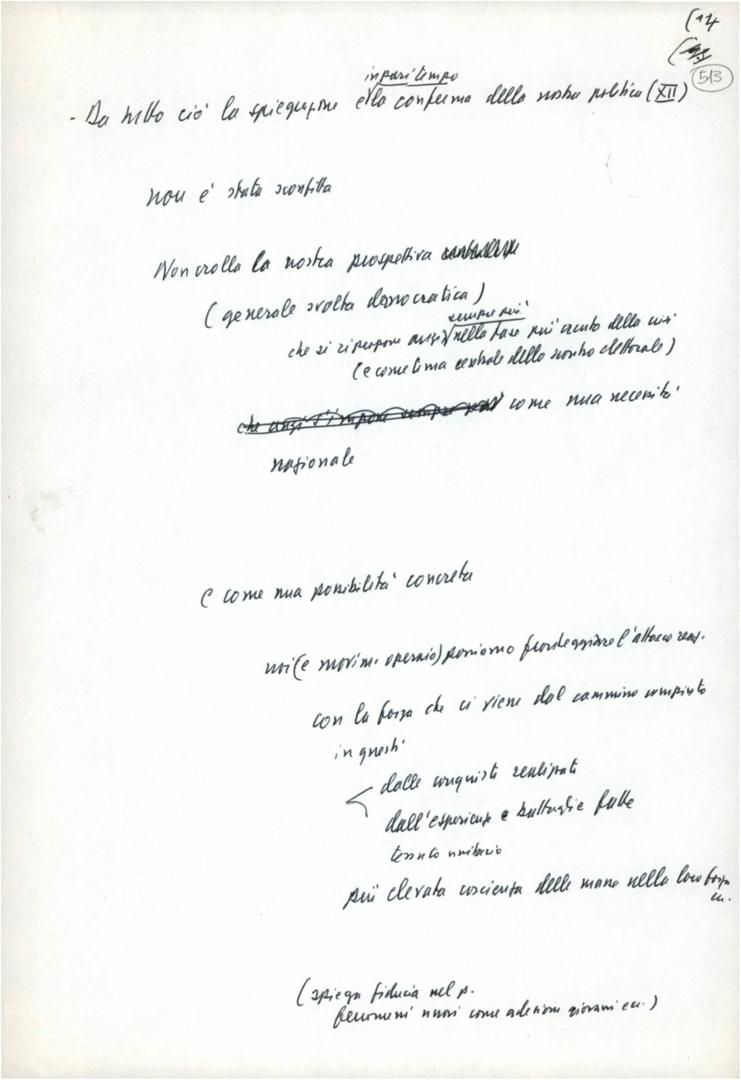 (14
513
in pari tempo
- Da tutto ciò la spiegazione e la conferma della nostra politica (XII)
non è stata sconfitta
Non crolla la nostra prospettiva
(generale svolta democratica)
sempre più
che si ripropone anzi nella fase più acuta della crisi
(e come tema centrale dello scontro elettorale)
che anzi s'impone sempre più come una necessità
nazionale
e come una possibilità concreta
noi (e movim. operaio) possiamo fronteggiare l'attacco reaz.
con la forza che ci viene dal cammino compiuto
in questi
dalle conquiste realizzate
dall'esperienze e battaglie fatte
tessuto unitario
più elevata coscienza delle masse nella loro forza
ecc.
(spiega fiducia nel p.
fenomeni nuovi come adesione giovani ecc.)